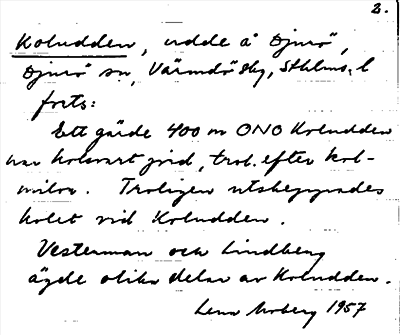 2.
Koludden, udde å Djurö,
Djurö sn, Värmdö skg, Sthlms. l
forts:
Ett gärde 400 m ONO Koludden
har kolsvart jord, trol. efter kol-
milor. Troligen utskeppades
kolet vid Koludden.
Vesterman och Lindberg
ägde olika delar av Koludden.
Lena Moberg 1957